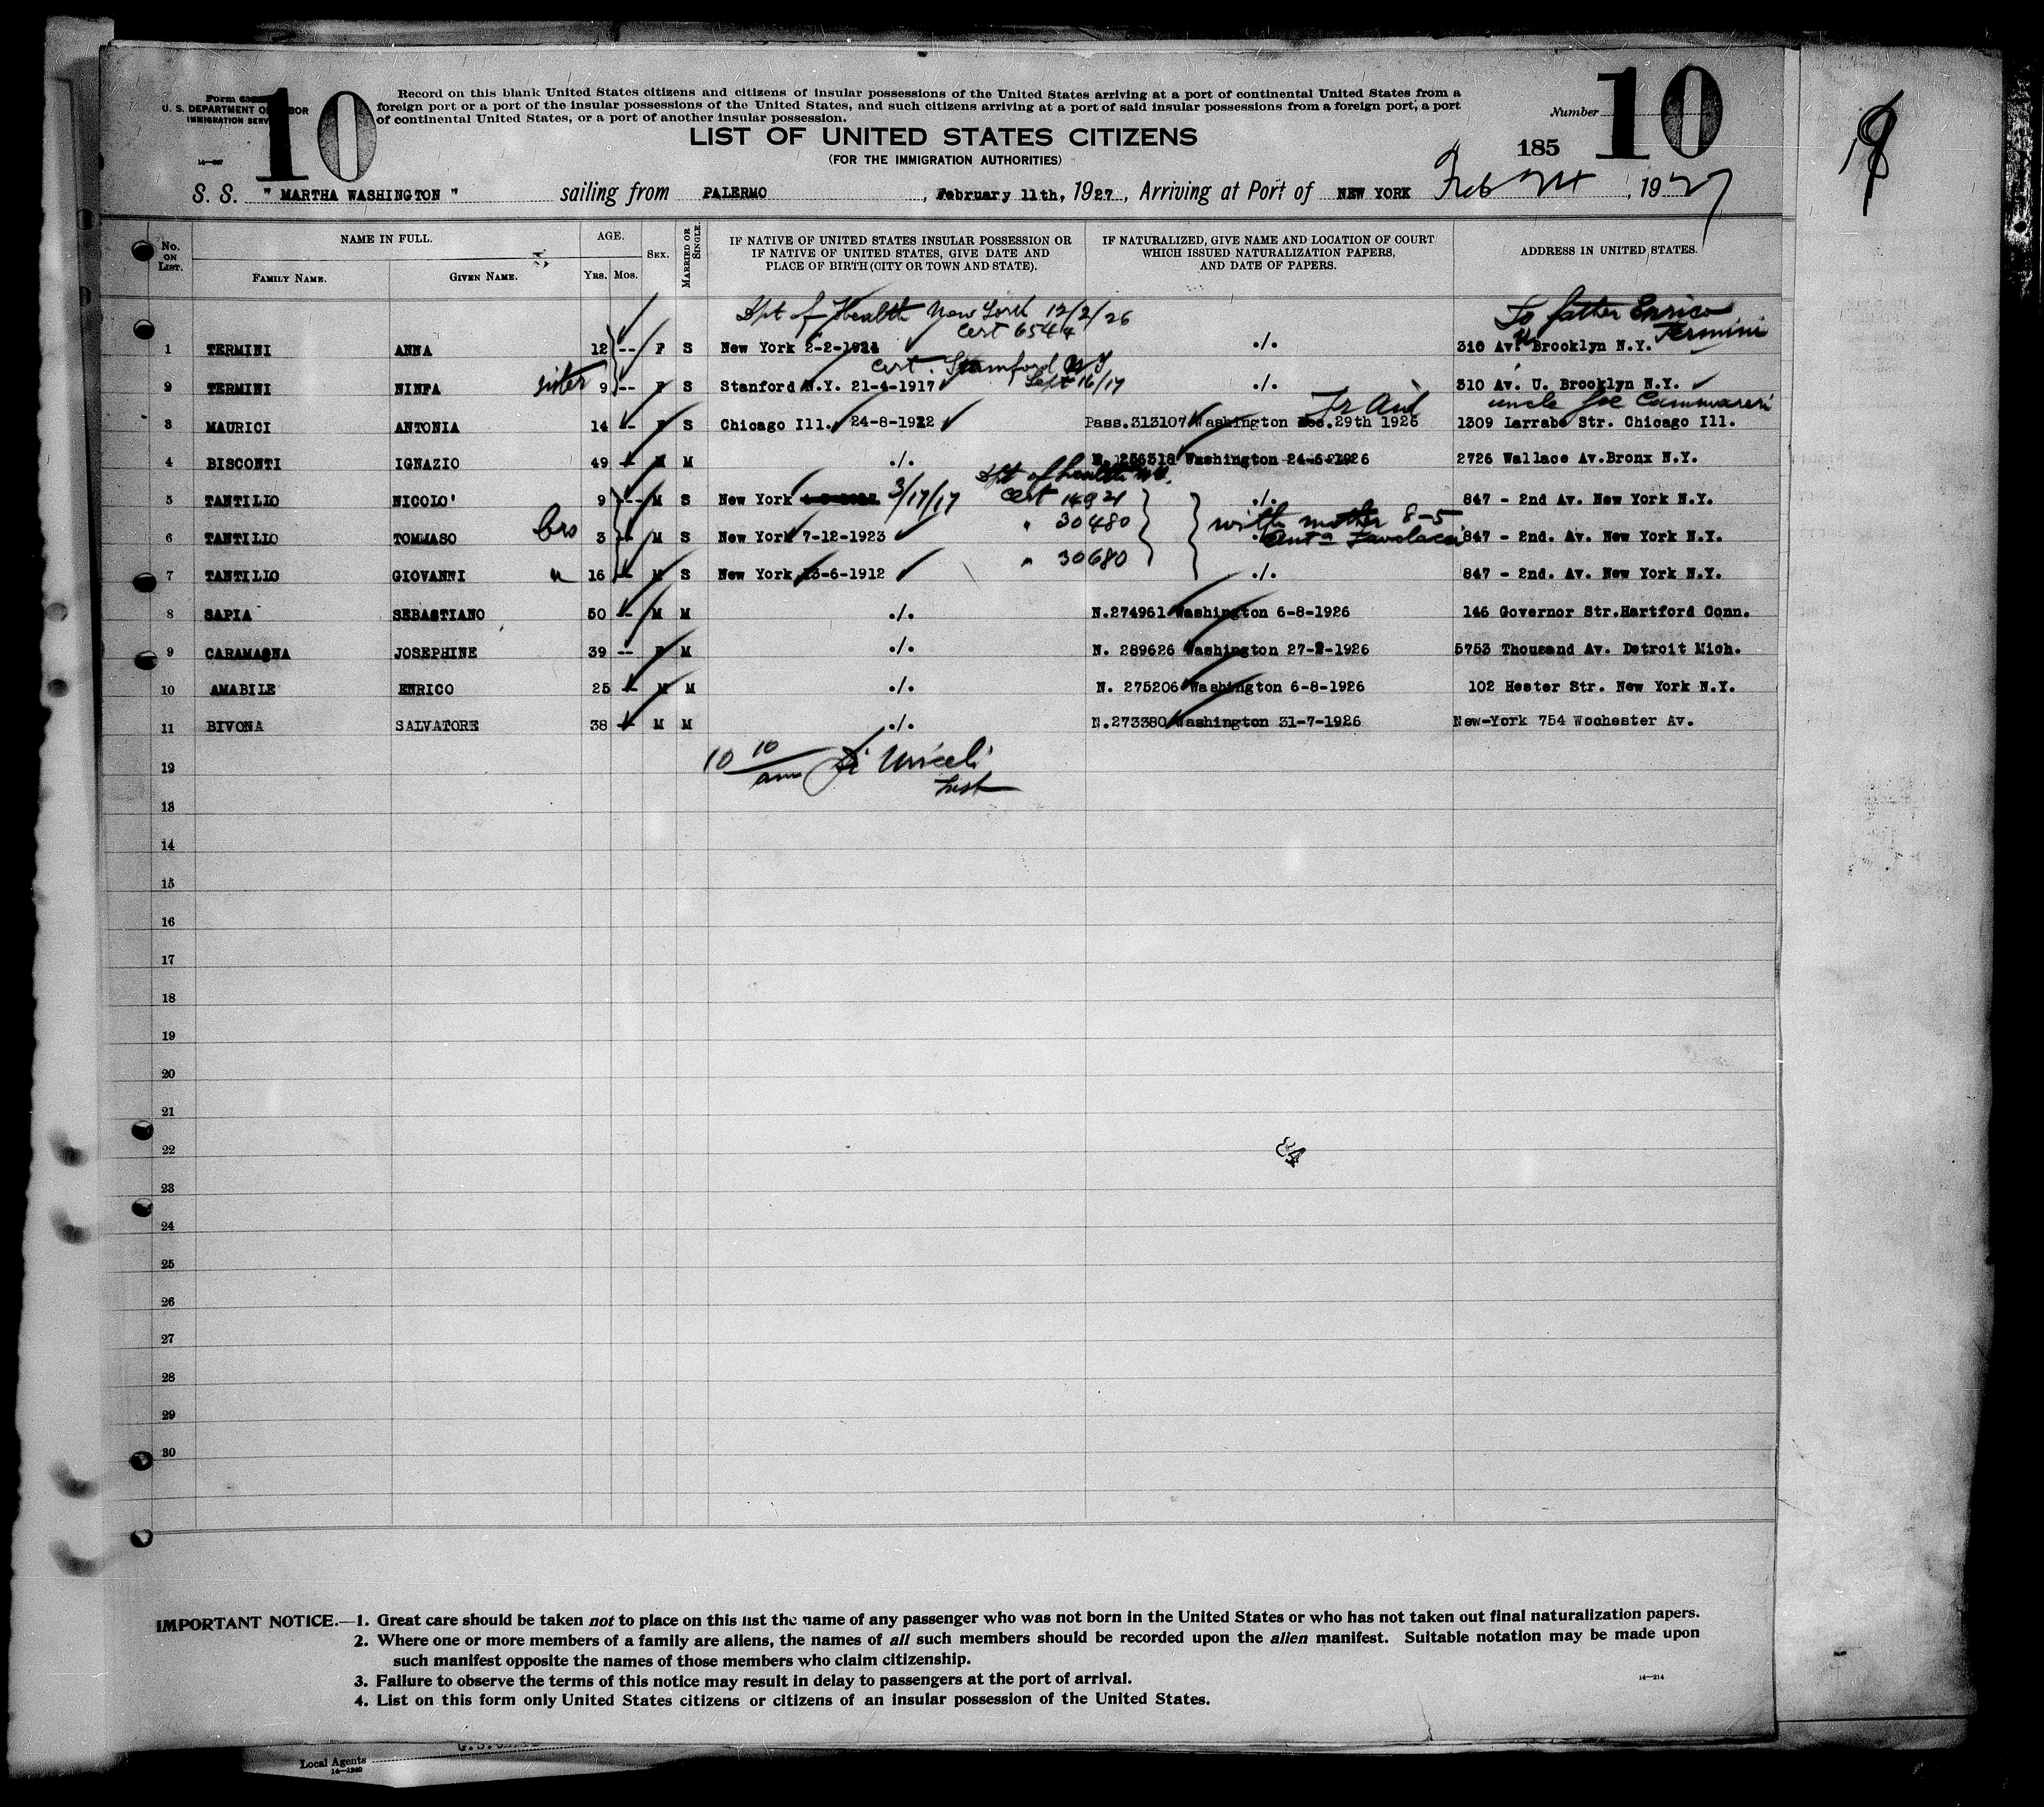 Form 63
U. S. DEPARTMENT OF LABOR
IMMIGRATION SERV
10
Record on this blank United States citizens and citizens of insular possessions of the United States arriving at a port of continental United States from a
foreign port or a port of the insular possessions of the United States, and such citizens arriving at a port of said insular possessions from a foreign port, a port
of continental United States, or a port of another insular possession.
Number 10
LIST OF UNITED STATES CITIZENS
(FOR THE IMMIGRATION AUTHORITIES)
185
S. S. " MARTHA WASHINGTON " sailing from PALERMO, February 11th, 1927, Arriving at Port of NEW YORK Feb, 1927
No. ON LIST. NAME IN FULL. AGE. SEX. MARRIED OR SINGLE. IF NATIVE OF UNITED STATES INSULAR POSSESSION OR IF NATIVE OF UNITED STATES, GIVE DATE AND PLACE OF BIRTH (CITY OR TOWN AND STATE). IF NATURALIZED, GIVE NAME AND LOCATION OF COURT WHICH ISSUED NATURALIZATION PAPERS, AND DATE OF PAPERS. ADDRESS IN UNITED STATES.
FAMILY NAME. GIVEN NAME. YRS. MOS.
Dpt of Health New York 12/2/26 To father Enrico
Cert 6544 Termini
1 TERMINI ANNA 12 -- F S New York 2-2-1914 ./. 310 Av. U Brooklyn N.Y.
Cert. Stamford N Y
Sept 16/17
2 TERMINI NINFA sister 9 -- F S Stanford N.Y. 21-4-1917 ./. 310 Av. U. Brooklyn N.Y.
uncle Joe Cammareri
3 MAURICI ANTONIA 14 -- F S Chicago Ill. 24-8-1912 Pass.313107 Washington Dec.29th 1926 1309 Larrabe Str. Chicago Ill.
4 BISCONTI IGNAZIO 49 -- M M ./. N. 256318 Washington 24-6-1926 2726 Wallace Av.Bronx N.Y.
Dpt of health
5 TANTILIO NICOLO' 9 -- M S New York 3/17/17 Cert ./. 847 - 2nd Av. New York N.Y.
" 30480 with mother 8-5
6 TANTILIO TOMMASO bro 3 -- M S New York 7-12-1923 ./. 847 - 2nd. Av. New York N.Y.
" 30680
7 TANTILIO GIOVANNI " 16 -- M S New York 13-6-1912 ./. 847 - 2nd. Av. New York N.Y.
8 SAPIA SEBASTIANO 50 -- M M ./. N.274961 Washington 6-8-1926 146 Governor Str.Hartford Conn.
9 CARAMAGNA JOSEPHINE 39 -- F M ./. N. 289626 Washington 27--1926 5753 Thousand Av. Detroit Mich.
10 AMABILE ENRICO 25 -- M M ./. N. 275206 Washington 6-8-1926 102 Hester Str. New York N.Y.
11 BIVONA SALVATORE 38 -- M M ./. N.273380 Washington 31-7-1926 New-York 754 Wochester Av.
10 10 am
12
Insp
13
14
15
16
17
18
19
20
21
22
23
24
25
26
27
28
29
30
IMPORTANT NOTICE.—1. Great care should be taken not to place on this list the name of any passenger who was not born in the United States or who has not taken out final naturalization papers.
2. Where one or more members of a family are aliens, the names of all such members should be recorded upon the alien manifest. Suitable notation may be made upon
such manifest opposite the names of those members who claim citizenship.
3. Failure to observe the terms of this notice may result in delay to passengers at the port of arrival.
14—214
4. List on this form only United States citizens or citizens of an insular possession of the United States.
Local Agents